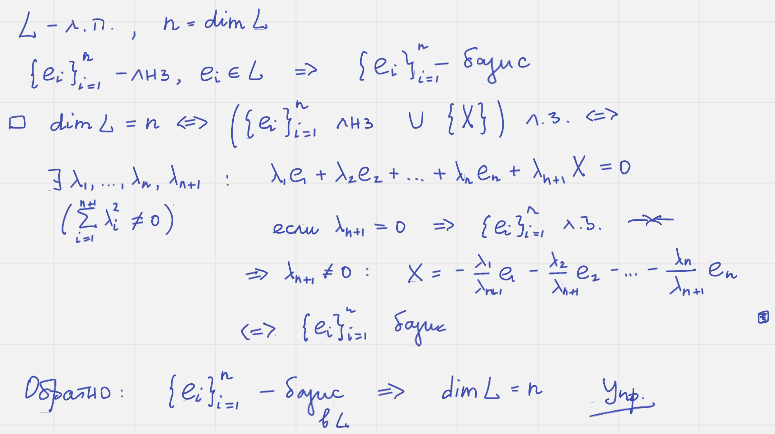 L – л.п. , n = dim L
{eᵢ}ⁿᵢ₌₁ – ЛНЗ, eᵢ ∈ L => {eᵢ}ⁿᵢ₌₁ – базис
□ dim L = n <=> ({eᵢ}ⁿᵢ₌₁ ЛНЗ ∪ {X}) л.з. <=>
∃ λ₁, ..., λₙ, λₙ₊₁ : λ₁e₁ + λ₂e₂ + ... + λₙeₙ + λₙ₊₁X = 0
(∑ⁿ⁺¹ᵢ₌₁ λᵢ² ≠ 0) если λₙ₊₁ = 0 => {eᵢ}ⁿᵢ₌₁ л.з.
=> λₙ₊₁ ≠ 0 : X = – λ₁/λₙ₊₁ e₁ – λ₂/λₙ₊₁ e₂ – ... – λₙ/λₙ₊₁ eₙ
<=> {eᵢ}ⁿᵢ₌₁ базис
Обратно : {eᵢ}ⁿᵢ₌₁ – базис => dim L = n Упр.
в L